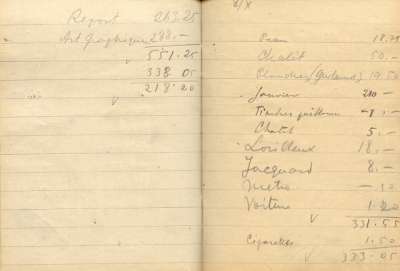 Report 263.25
Art Graphique 288.-
551.25
338 05
213.20
2/X
18.75
Chalit 50.-
Planches (Guiland) 19.50
Janvier 210 -
Timbres quittance - 8.-
Chatel 5.-
Lorilleux 18.-
Jacquard 8.-
Metro - 30
Voiture 1.20
331.55
Cigarettes 1.50
333.05